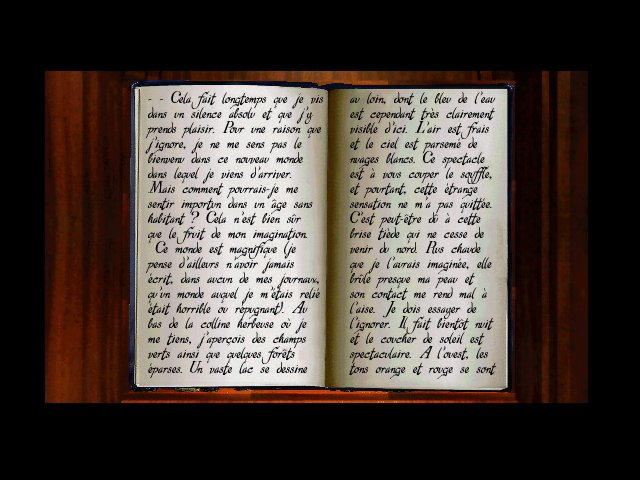 - - Cela fait longtemps que je vis
dans un silence absolu et que j'y
prends plaisir. Pour une raison que
j'ignore, je ne me sens pas le
bienvenu dans ce nouveau monde
dans lequel je viens d'arriver.
Mais comment pourrais-je me
sentir importun dans un âge sans
habitant ? Cela n'est bien sûr
que le fruit de mon imagination.
Ce monde est magnifique (je
pense d'ailleurs n'avoir jamais
écrit, dans aucun de mes journaux,
qu'un monde auquel je m'étais relié
était horrible ou répugnant). Au
bas de la colline herbeuse où je
me tiens, j'aperçois des champs
verts ainsi que quelques forêts
éparses. Un vaste lac se dessine
au loin, dont le bleu de l'eau
est cependant très clairement
visible d'ici. L'air est frais
et le ciel est parsemé de
nuages blancs. Ce spectacle
est à vous couper le souffle,
et pourtant, cette étrange
sensation ne m'a pas quittée.
C'est peut-être dû à cette
brise tiède qui ne cesse de
venir du nord. Plus chaude
que je l'aurais imaginée, elle
brûle presque ma peau et
son contact me rend mal à
l'aise. Je dois essayer de
l'ignorer. Il fait bientôt nuit
et le coucher de soleil est
spectaculaire. A l'ouest, les
tons orange et rouge se sont